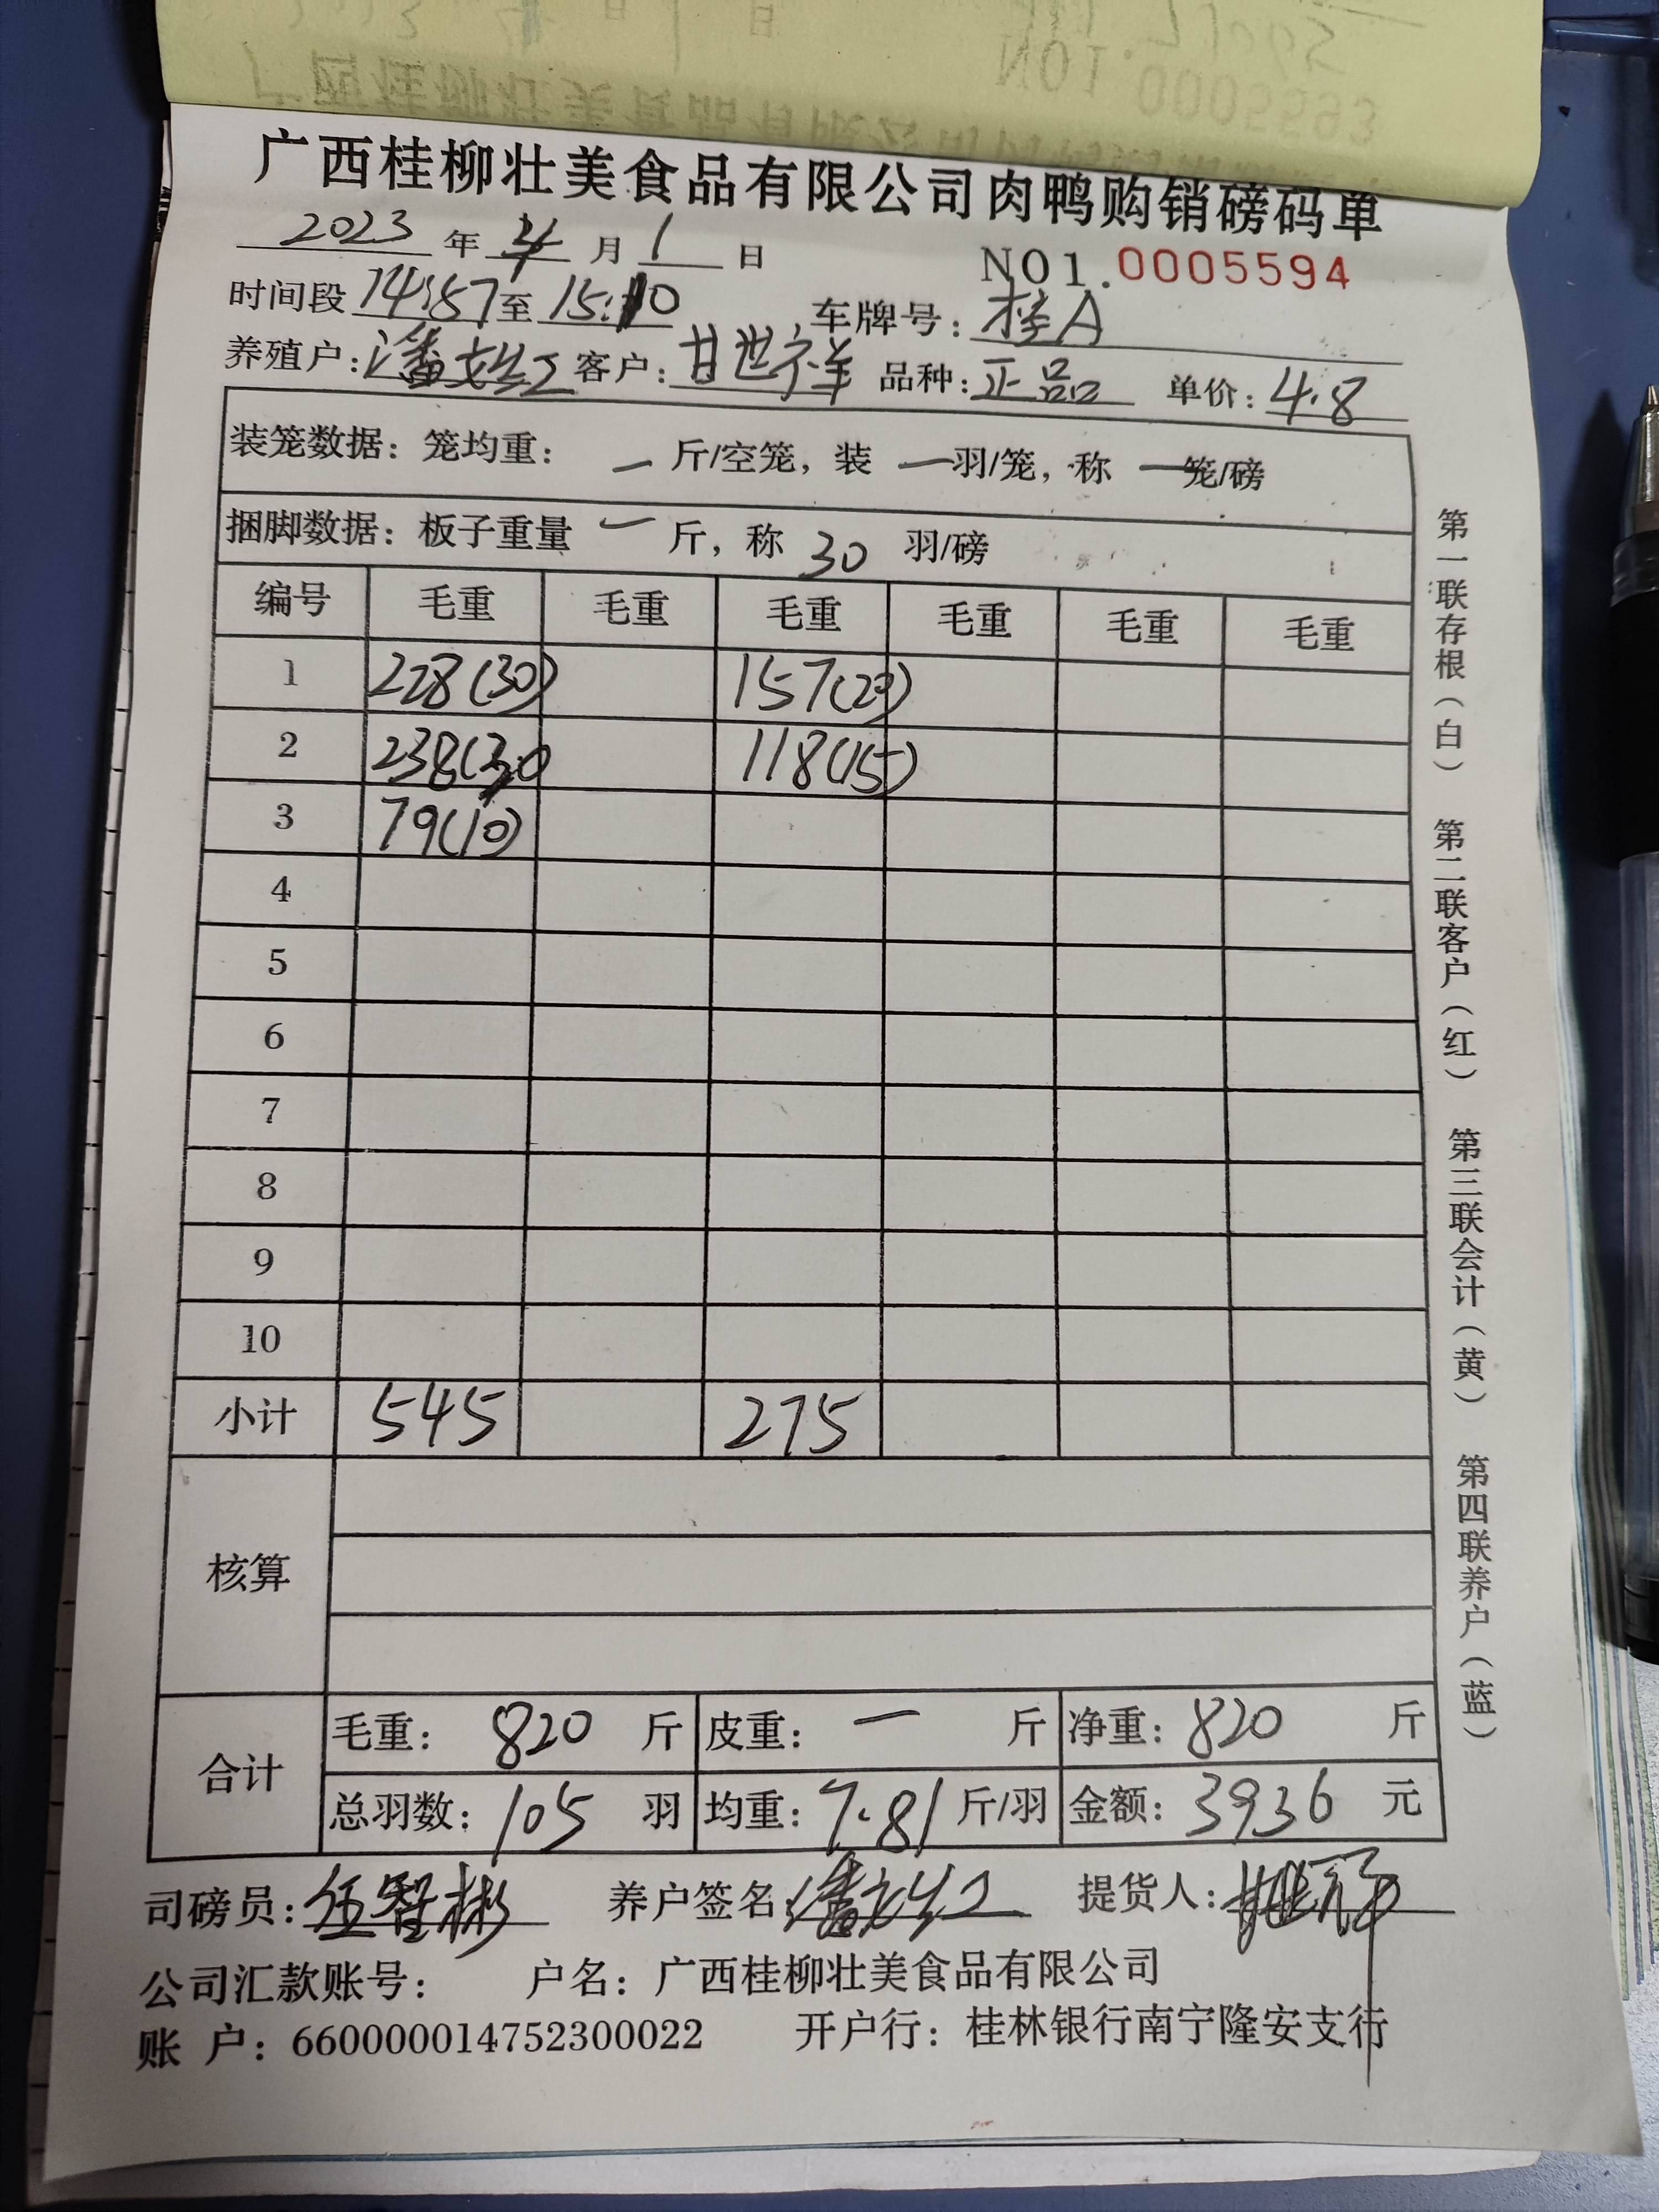 广西桂柳壮美食品有限公司肉鸭购销磅码单
2023 年 4 月 1 日
NO1.0005594
时间段 14:57 至 15:10 车牌号: 桂A
养殖户: 潘 客户: 甘世祥 品种: 正品 单价: 4.8
装笼数据: 笼均重: 一 斤/空笼, 装 一 羽/笼, 称 一 笼/磅
捆脚数据: 板子重量 一 斤, 称 30 羽/磅
编号 毛重 毛重 毛重 毛重 毛重 毛重
1 228(30) 157(20)
2 238(30 118(15)
3 79(10)
4
5
6
7
8
9
10
小计 545 275
核算
合计
毛重: 820 斤 皮重: 一 斤 净重: 820 斤
总羽数: 105 羽 均重: 7.81 斤/羽 金额: 3936 元
司磅员: 伍智彬 养户签名: 潘 提货人:
公司汇款账号: 户名: 广西桂柳壮美食品有限公司
账 户: 660000014752300022 开户行: 桂林银行南宁隆安支行
第一联存根(白) 第二联客户(红) 第三联会计(黄) 第四联养户(蓝)